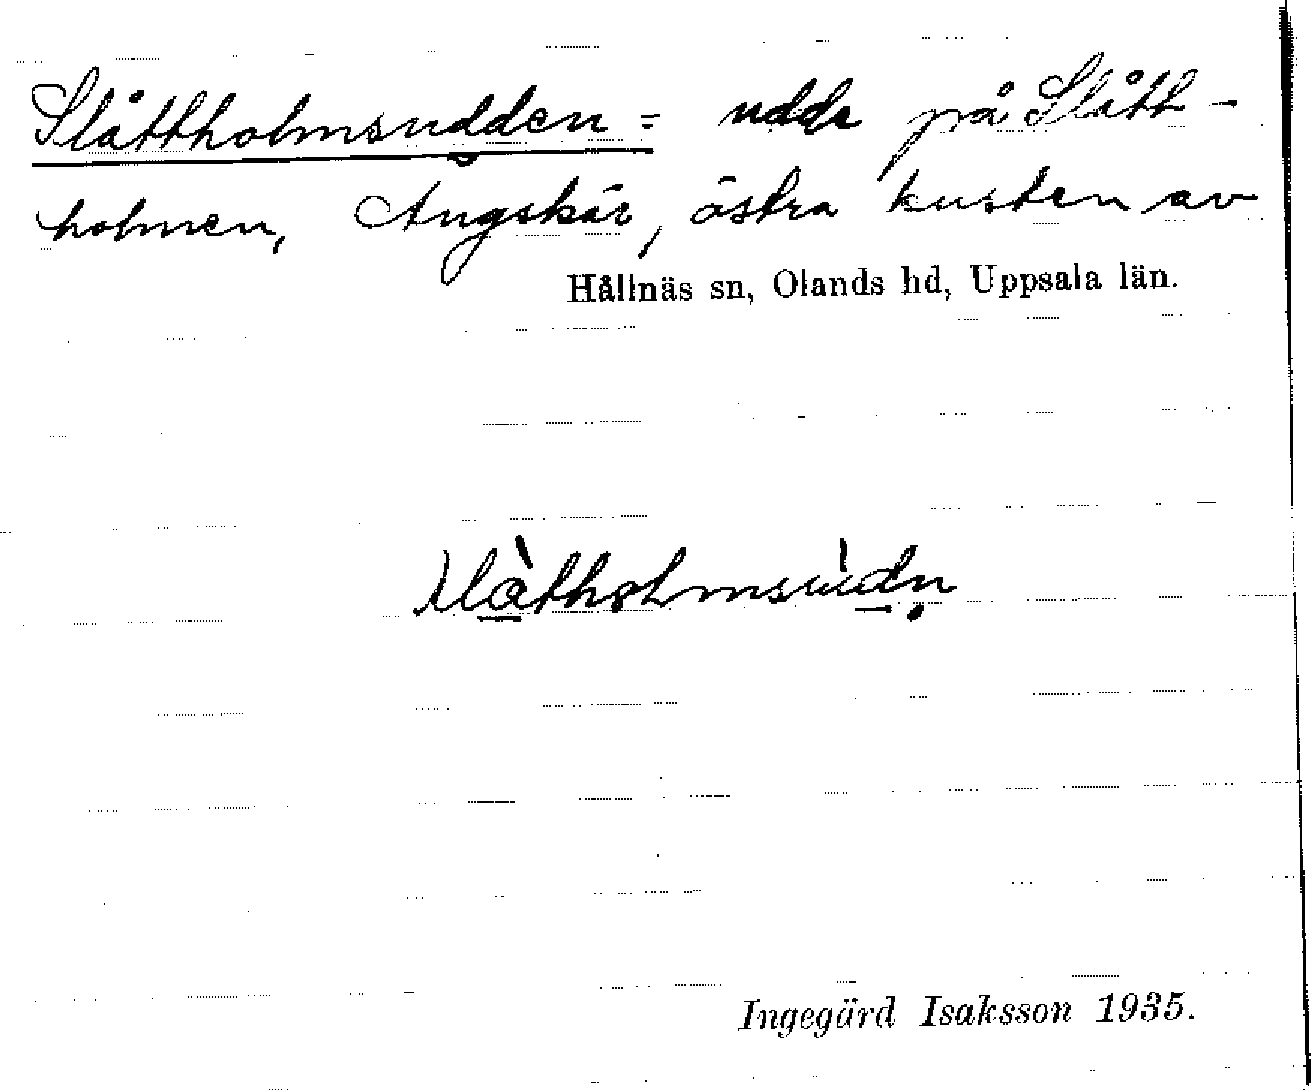 Slåttholmsudden = udde på Slått-
holmen, Ängskär, östra kusten av
Hållnäs sn, Olands hd, Uppsala län.
slàtholmsùdṇ
Ingegärd Isaksson 1935.